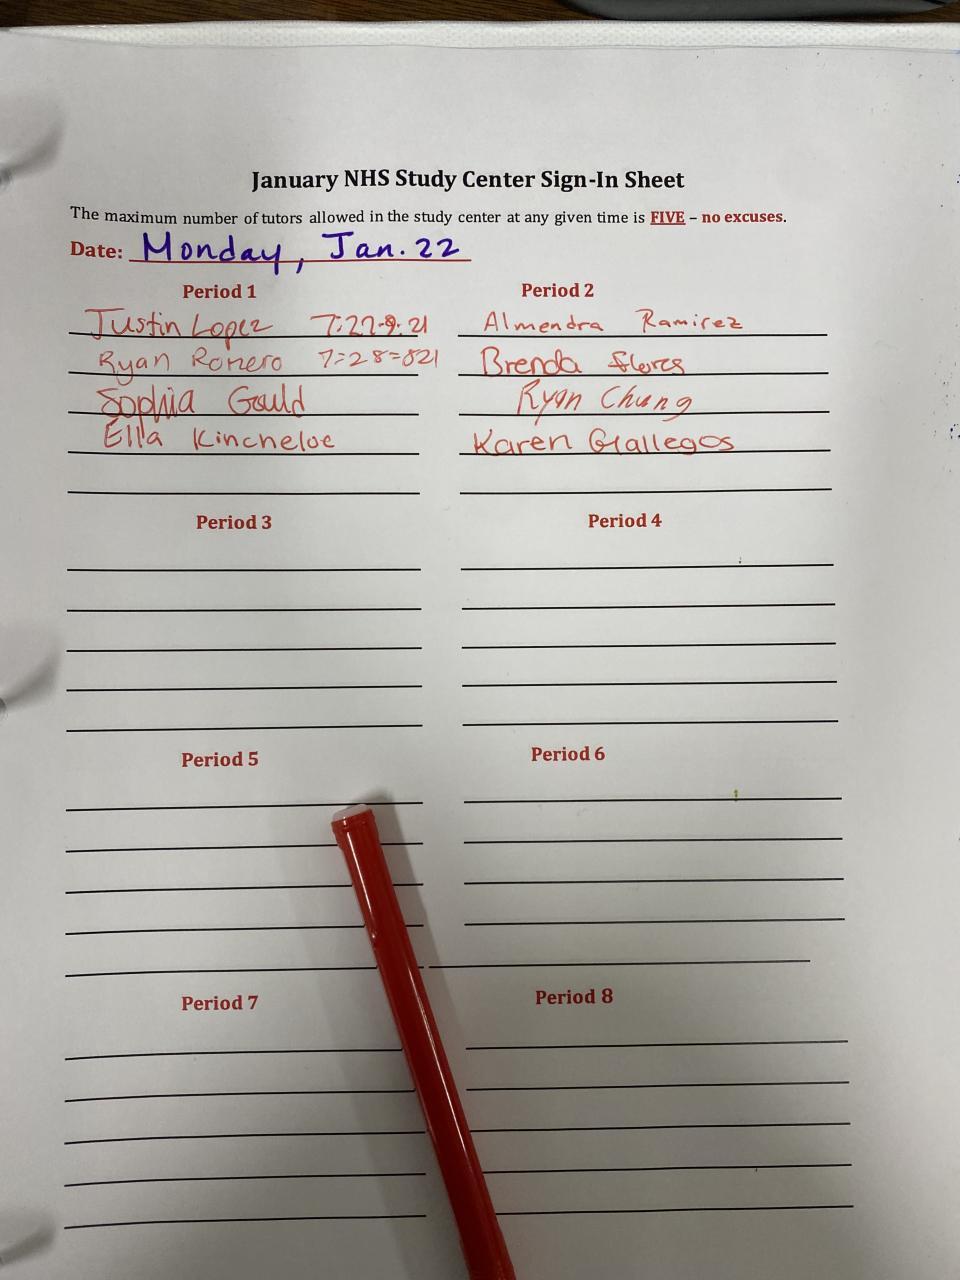 January NHS Study Center Sign-In Sheet
The maximum number of tutors allowed in the study center at any given time is FIVE – no excuses.
Date: Monday, Jan. 22
Period 1
Justin Lopez
Ryan Romero 7:28=821
Sophia Gould
Ella Kincheloe
Period 2
Almendra Ramirez
Brenda flores
Ryan Chung
Karen Gallegos
Period 3
Period 4
Period 5
Period 6
Period 7
Period 8